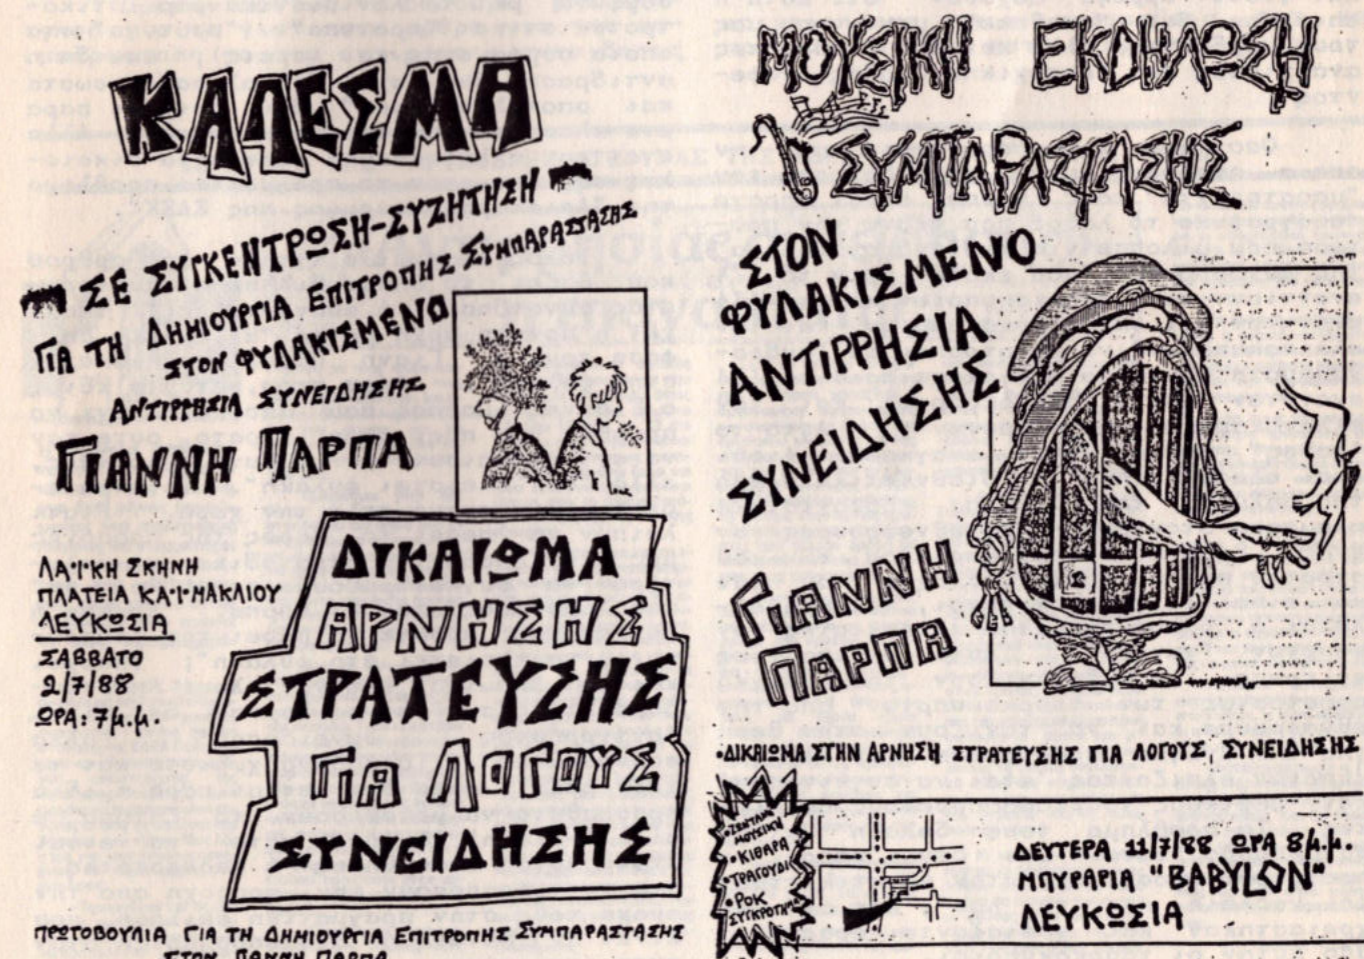 ΚΑΛΕΣΜΑ
ΣΕ ΣΥΓΚΕΝΤΡΩΣΗ-ΣΥΖΗΤΗΣΗ
ΓΙΑ ΤΗ ΔΗΜΙΟΥΡΓΙΑ ΕΠΙΤΡΟΠΗΣ ΣΥΜΠΑΡΑΣΤΑΣΗΣ
ΣΤΟΝ ΦΥΛΑΚΙΣΜΕΝΟ
ΑΝΤΙΡΡΗΣΙΑ ΣΥΝΕΙΔΗΣΗΣ
ΓΙΑΝΝΗ ΠΑΡΠΑ
ΛΑΪΚΗ ΣΚΗΝΗ
ΠΛΑΤΕΙΑ ΚΑΪΜΑΚΛΙΟΥ
ΛΕΥΚΩΣΙΑ
ΣΑΒΒΑΤΟ
2/7/88
ΩΡΑ: 7μ.μ.
ΔΙΚΑΙΩΜΑ
ΑΡΝΗΣΗΣ
ΣΤΡΑΤΕΥΣΗΣ
ΓΙΑ ΛΟΓΟΥΣ
ΣΥΝΕΙΔΗΣΗΣ
ΠΡΩΤΟΒΟΥΛΙΑ ΓΙΑ ΤΗ ΔΗΜΙΟΥΡΓΙΑ ΕΠΙΤΡΟΠΗΣ ΣΥΜΠΑΡΑΣΤΑΣΗΣ
ΣΤΟΝ ΓΙΑΝΝΗ ΠΑΡΠΑ
ΜΟΥΣΙΚΗ ΕΚΔΗΛΩΣΗ
ΣΥΜΠΑΡΑΣΤΑΣΗΣ
ΣΤΟΝ
ΦΥΛΑΚΙΣΜΕΝΟ
ΑΝΤΙΡΡΗΣΙΑ
ΣΥΝΕΙΔΗΣΗΣ
ΓΙΑΝΝΗ
ΠΑΡΠΑ
·ΔΙΚΑΙΩΜΑ ΣΤΗΝ ΑΡΝΗΣΗ ΣΤΡΑΤΕΥΣΗΣ ΓΙΑ ΛΟΓΟΥΣ ΣΥΝΕΙΔΗΣΗΣ
·ΖΩΝΤΑΝΗ
ΜΟΥΣΙΚΗ
·ΚΙΘΑΡΑ
·ΤΡΑΓΟΥΔΙ
·ΡΟΚ
ΣΥΓΚΡΟΤΗΜΑ
ΔΕΥΤΕΡΑ 11/7/88 ΩΡΑ 8μ.μ.
ΜΠΥΡΑΡΙΑ "BABYLON"
ΛΕΥΚΩΣΙΑ